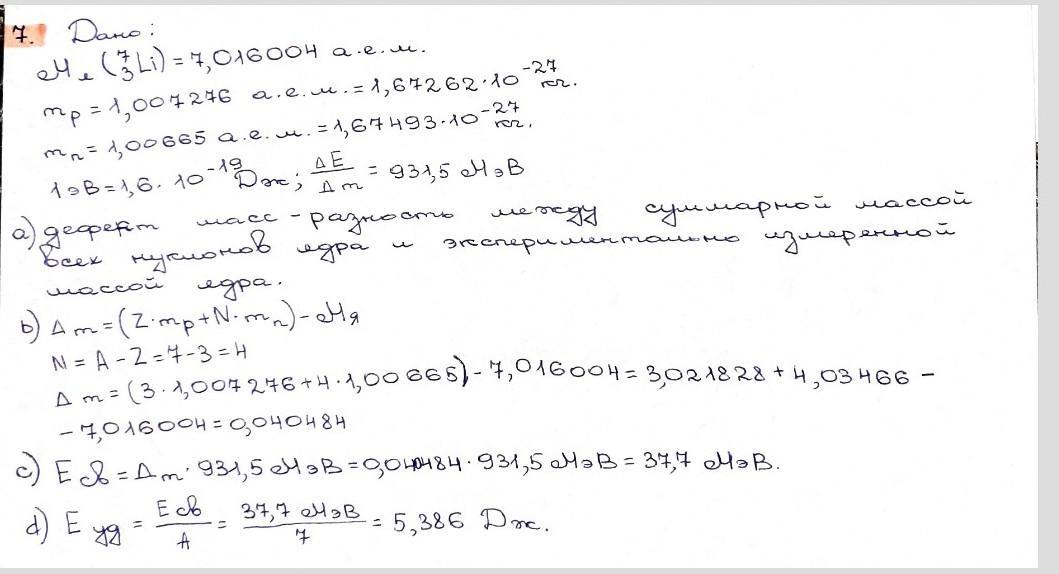 7. Дано:
Mя (⁷₃Li) = 7,016004 а.е.м.
mp = 1,007276 а.е.м. = 1,67262·10⁻²⁷ кг.
mn = 1,00665 а.е.м. = 1,67493·10⁻²⁷ кг.
1 эВ = 1,6·10⁻¹⁹ Дж; ΔE/Δm = 931,5 МэВ
a) дефект масс - разность между суммарной массой
всех нуклонов ядра и экспериментально измеренной
массой ядра.
b) Δm = (Z·mp + N·mn) - Mя
N = A - Z = 7 - 3 = 4
Δm = (3·1,007276 + 4·1,00665) - 7,016004 = 3,021828 + 4,03466 -
- 7,016004 = 0,040484
c) E св = Δm·931,5 МэВ = 0,040484·931,5 МэВ = 37,7 МэВ.
d) E уд = E св/A = 37,7 МэВ/7 = 5,386 Дж.